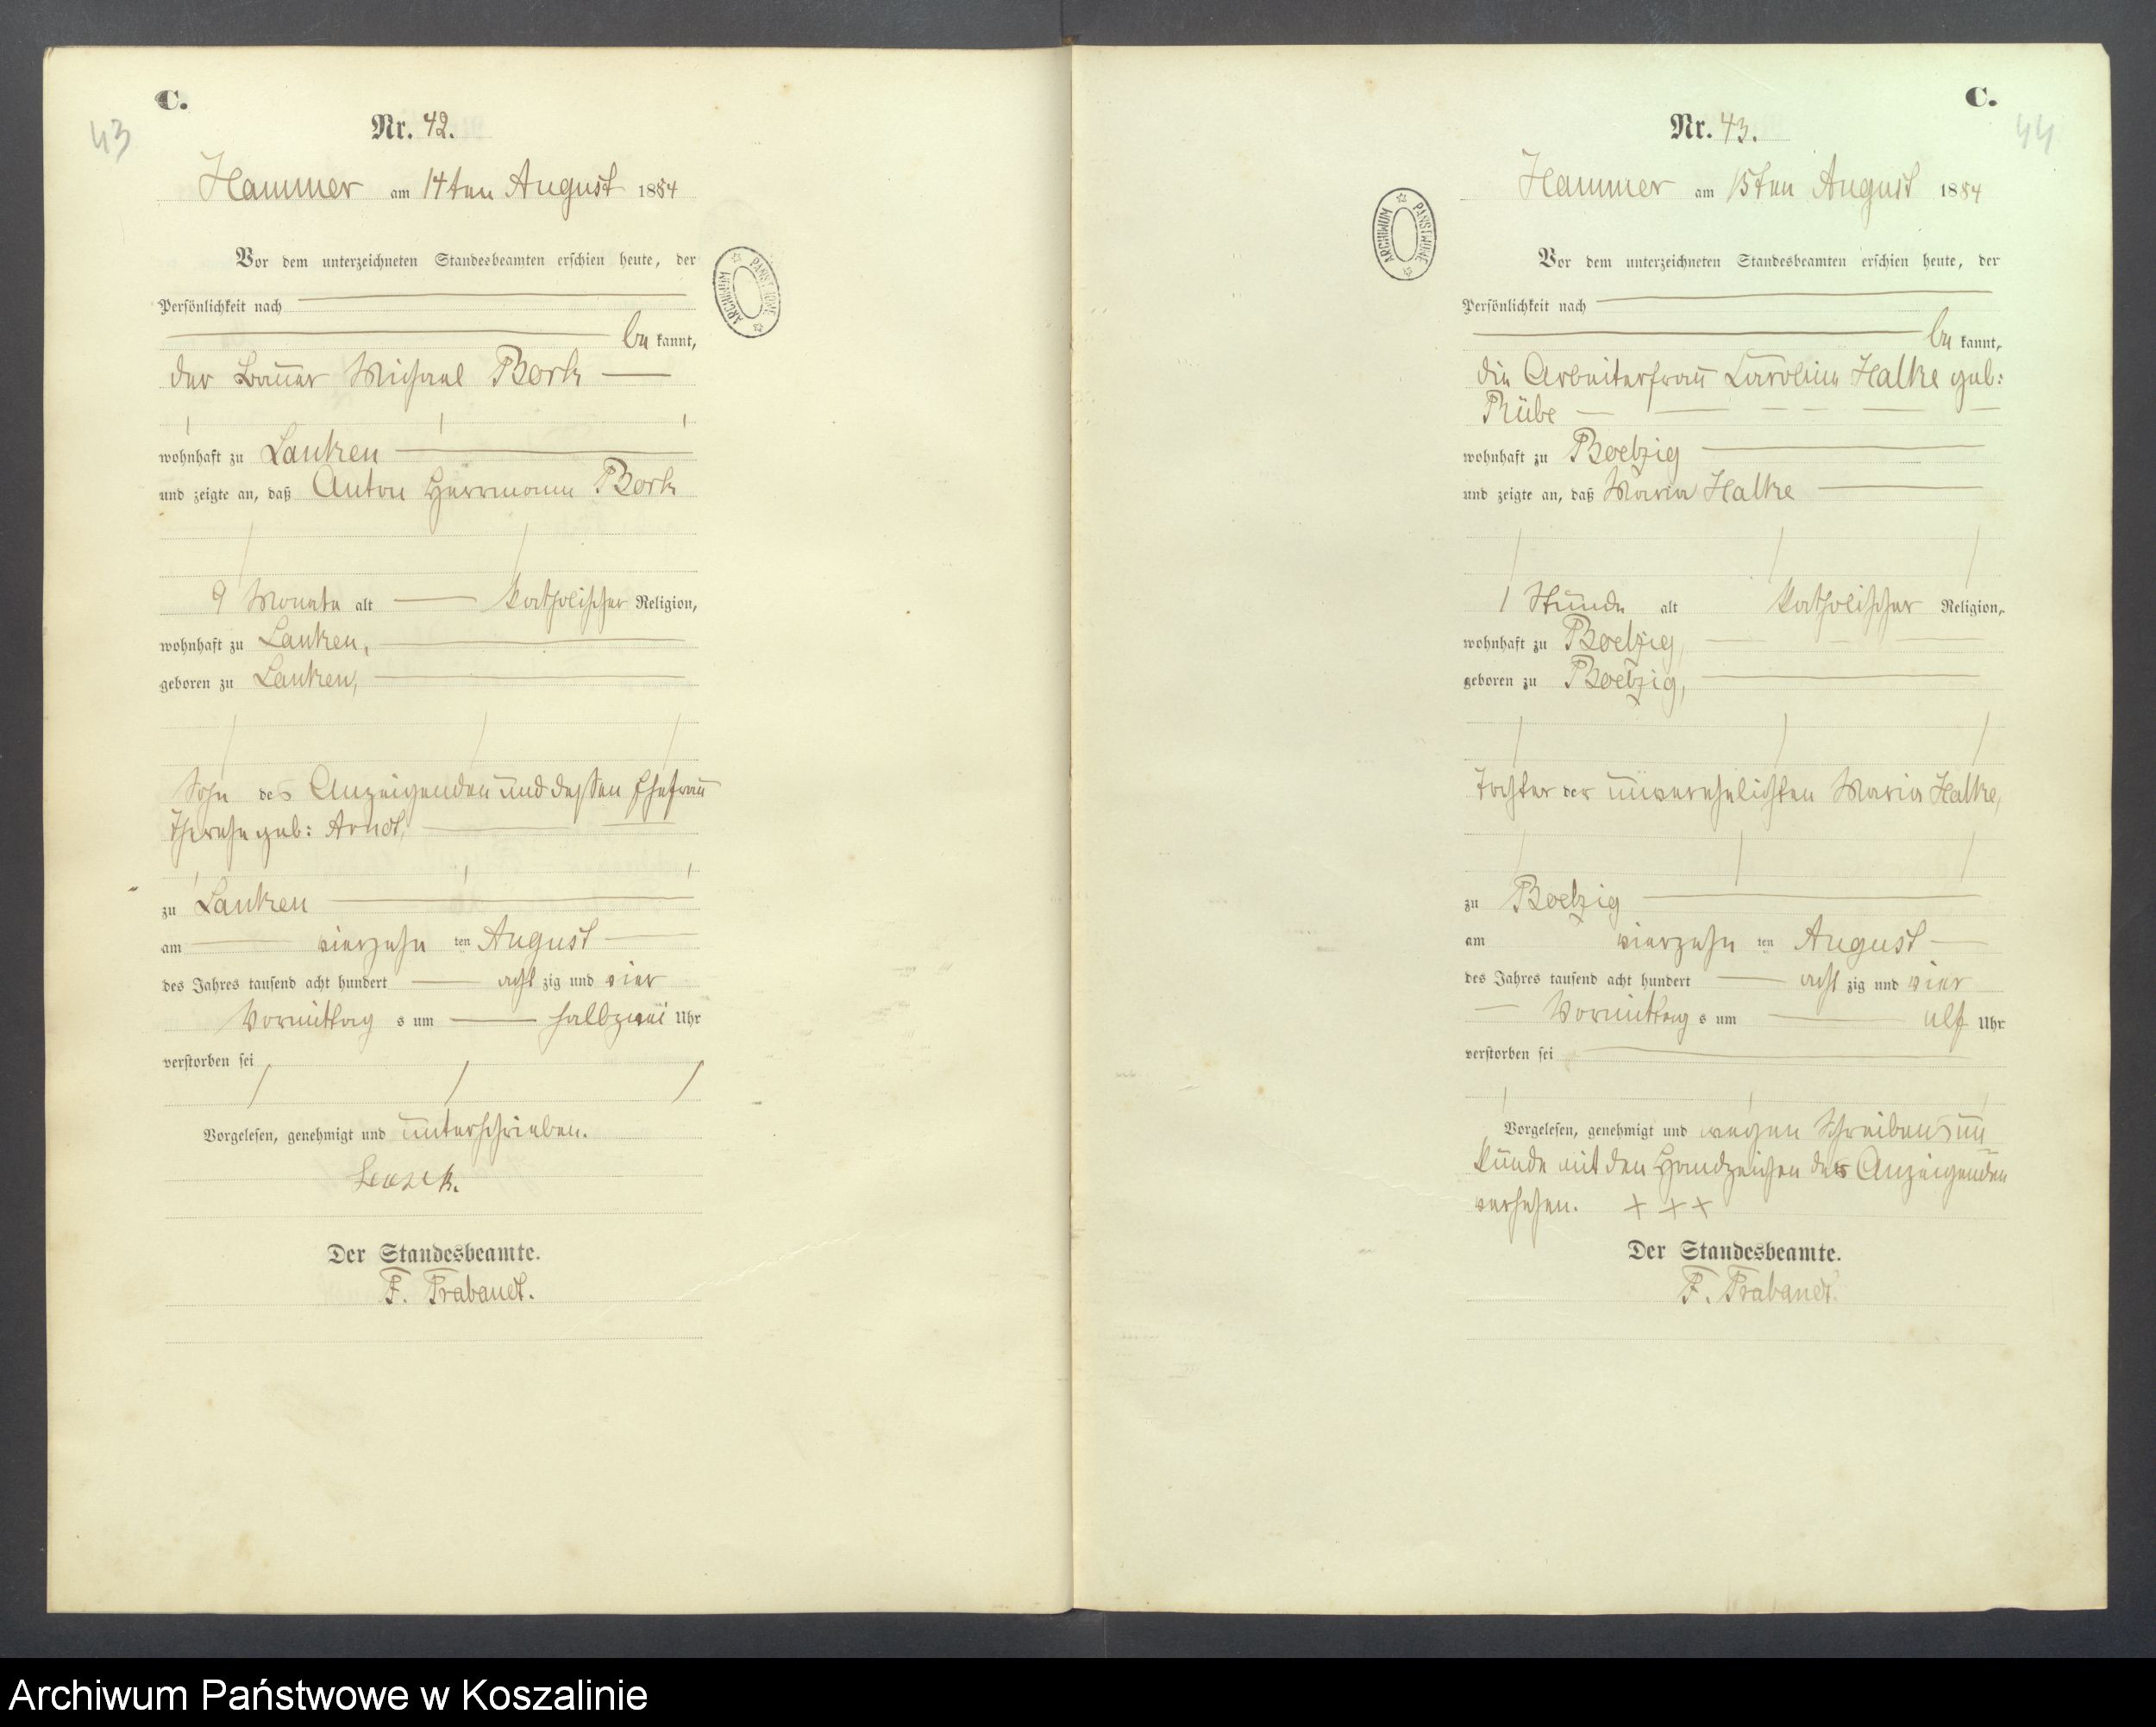 C.
43
Nr. 42.
Hammer am 14ten August 1884
Vor dem unterzeichneten Standesbeamten erschien heute, der
Persönlichkeit nach
be kannt,
der Bauer Michael Bork
wohnhaft zu Lanken
und zeigte an, daß Anton Herrmann Bork
9 Monate alt katholischer Religion,
wohnhaft zu Lanken,
geboren zu Lanken,
Sohn des Anzeigenden und dessen Ehefrau
Therese geb: Arndt,
zu Lanken
am vierzehn ten August
des Jahres tausend acht hundert acht zig und vier
Vormittag s um halb zwei Uhr
verstorben sei
Vorgelesen, genehmigt und unterschrieben.
Der Standesbeamte.
F. Trabandt.
ARCHIWUM PAŃSTWOWE
C.
44
Nr. 43.
Hammer am 15ten August 1884
Vor dem unterzeichneten Standesbeamten erschien heute, der
Persönlichkeit nach
be kannt,
die Arbeiterfrau Caroline Halke geb:
Rübe
wohnhaft zu Boelzig
und zeigte an, daß Maria Halke
1 Stunde alt katholischer Religion,
wohnhaft zu Boelzig,
geboren zu Boelzig,
Tochter der unverehelichten Maria Halke,
zu Boelzig
am vierzehn ten August
des Jahres tausend acht hundert acht zig und vier
Vormittag s um elf Uhr
verstorben sei
Vorgelesen, genehmigt und wegen Schreibensun
kunde mit den Handzeichen des Anzeigenden
versehen. + + +
Der Standesbeamte.
F. Trabandt.
ARCHIWUM PAŃSTWOWE
Archiwum Państwowe w Koszalinie